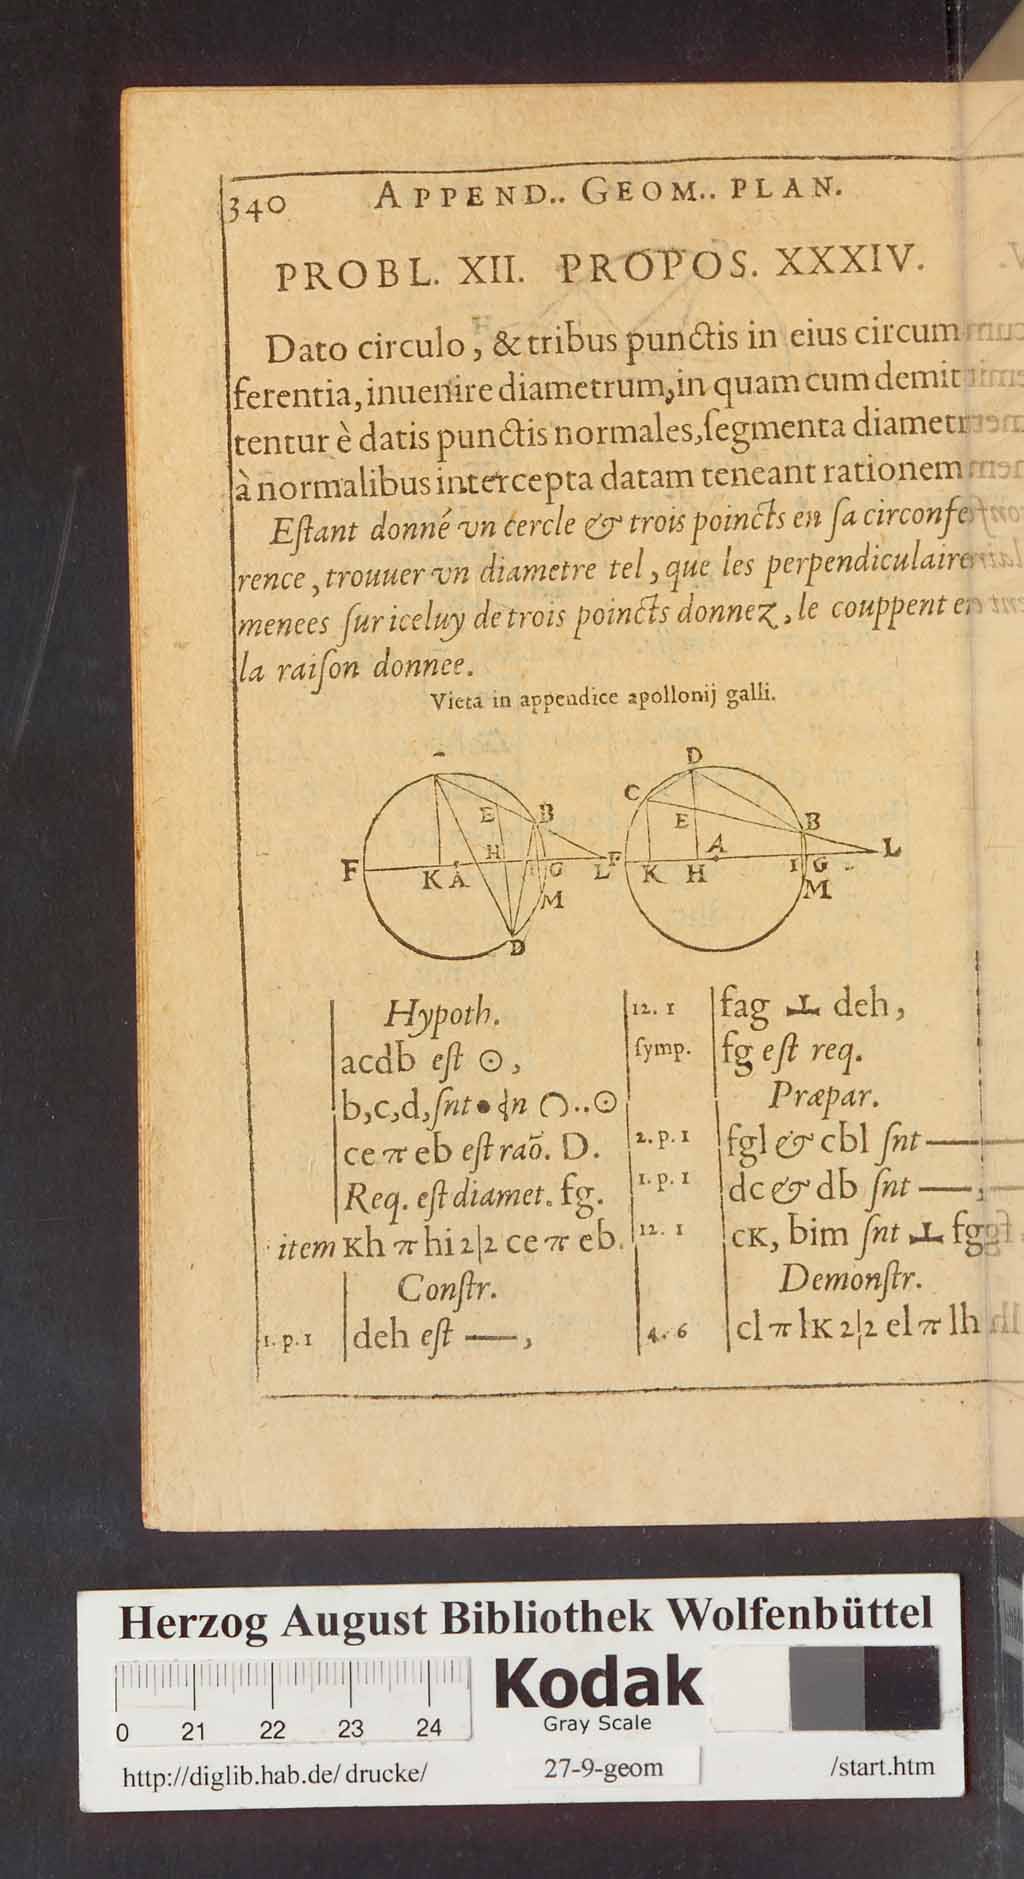 340 APPEND.. GEOM.. PLAN.
PROBL. XII. PROPOS. XXXIV.
Dato circulo, & tribus punctis in eius circum
ferentia, inuenire diametrum, in quam cum demit
tentur è datis punctis normales, ſegmenta diametr
à normalibus intercepta datam teneant rationem
Eſtant donné vn cercle & trois poincts en ſa circonfe
rence, trouuer vn diametre tel, que les perpendiculaire
menees ſur iceluy de trois poincts donnez, le couppent en
la raiſon donnee.
Vieta in appendice apollonij galli.
F K A H E B I G L M D
F C D E B A K H I G L M
Hypoth.
acdb eſt ⊙,
b,c,d, ſnt • in ◠..⊙
ce π eb eſt raõ. D.
Req. eſt diamet. fg.
item Kh π hi 2|2 ce π eb.
Conſtr.
1.p.1 deh eſt —,
12. 1 fag ⊥ deh,
ſymp. fg eſt req.
Præpar.
2.p.1 fgl & cbl ſnt —
1.p.1 dc & db ſnt —,
12. 1 cK, bim ſnt ⊥ fg
Demonſtr.
4. 6 cl π lK 2|2 el π lh
Herzog August Bibliothek Wolfenbüttel
0 21 22 23 24
Kodak
Gray Scale
http://diglib.hab.de/drucke/ 27-9-geom /start.htm